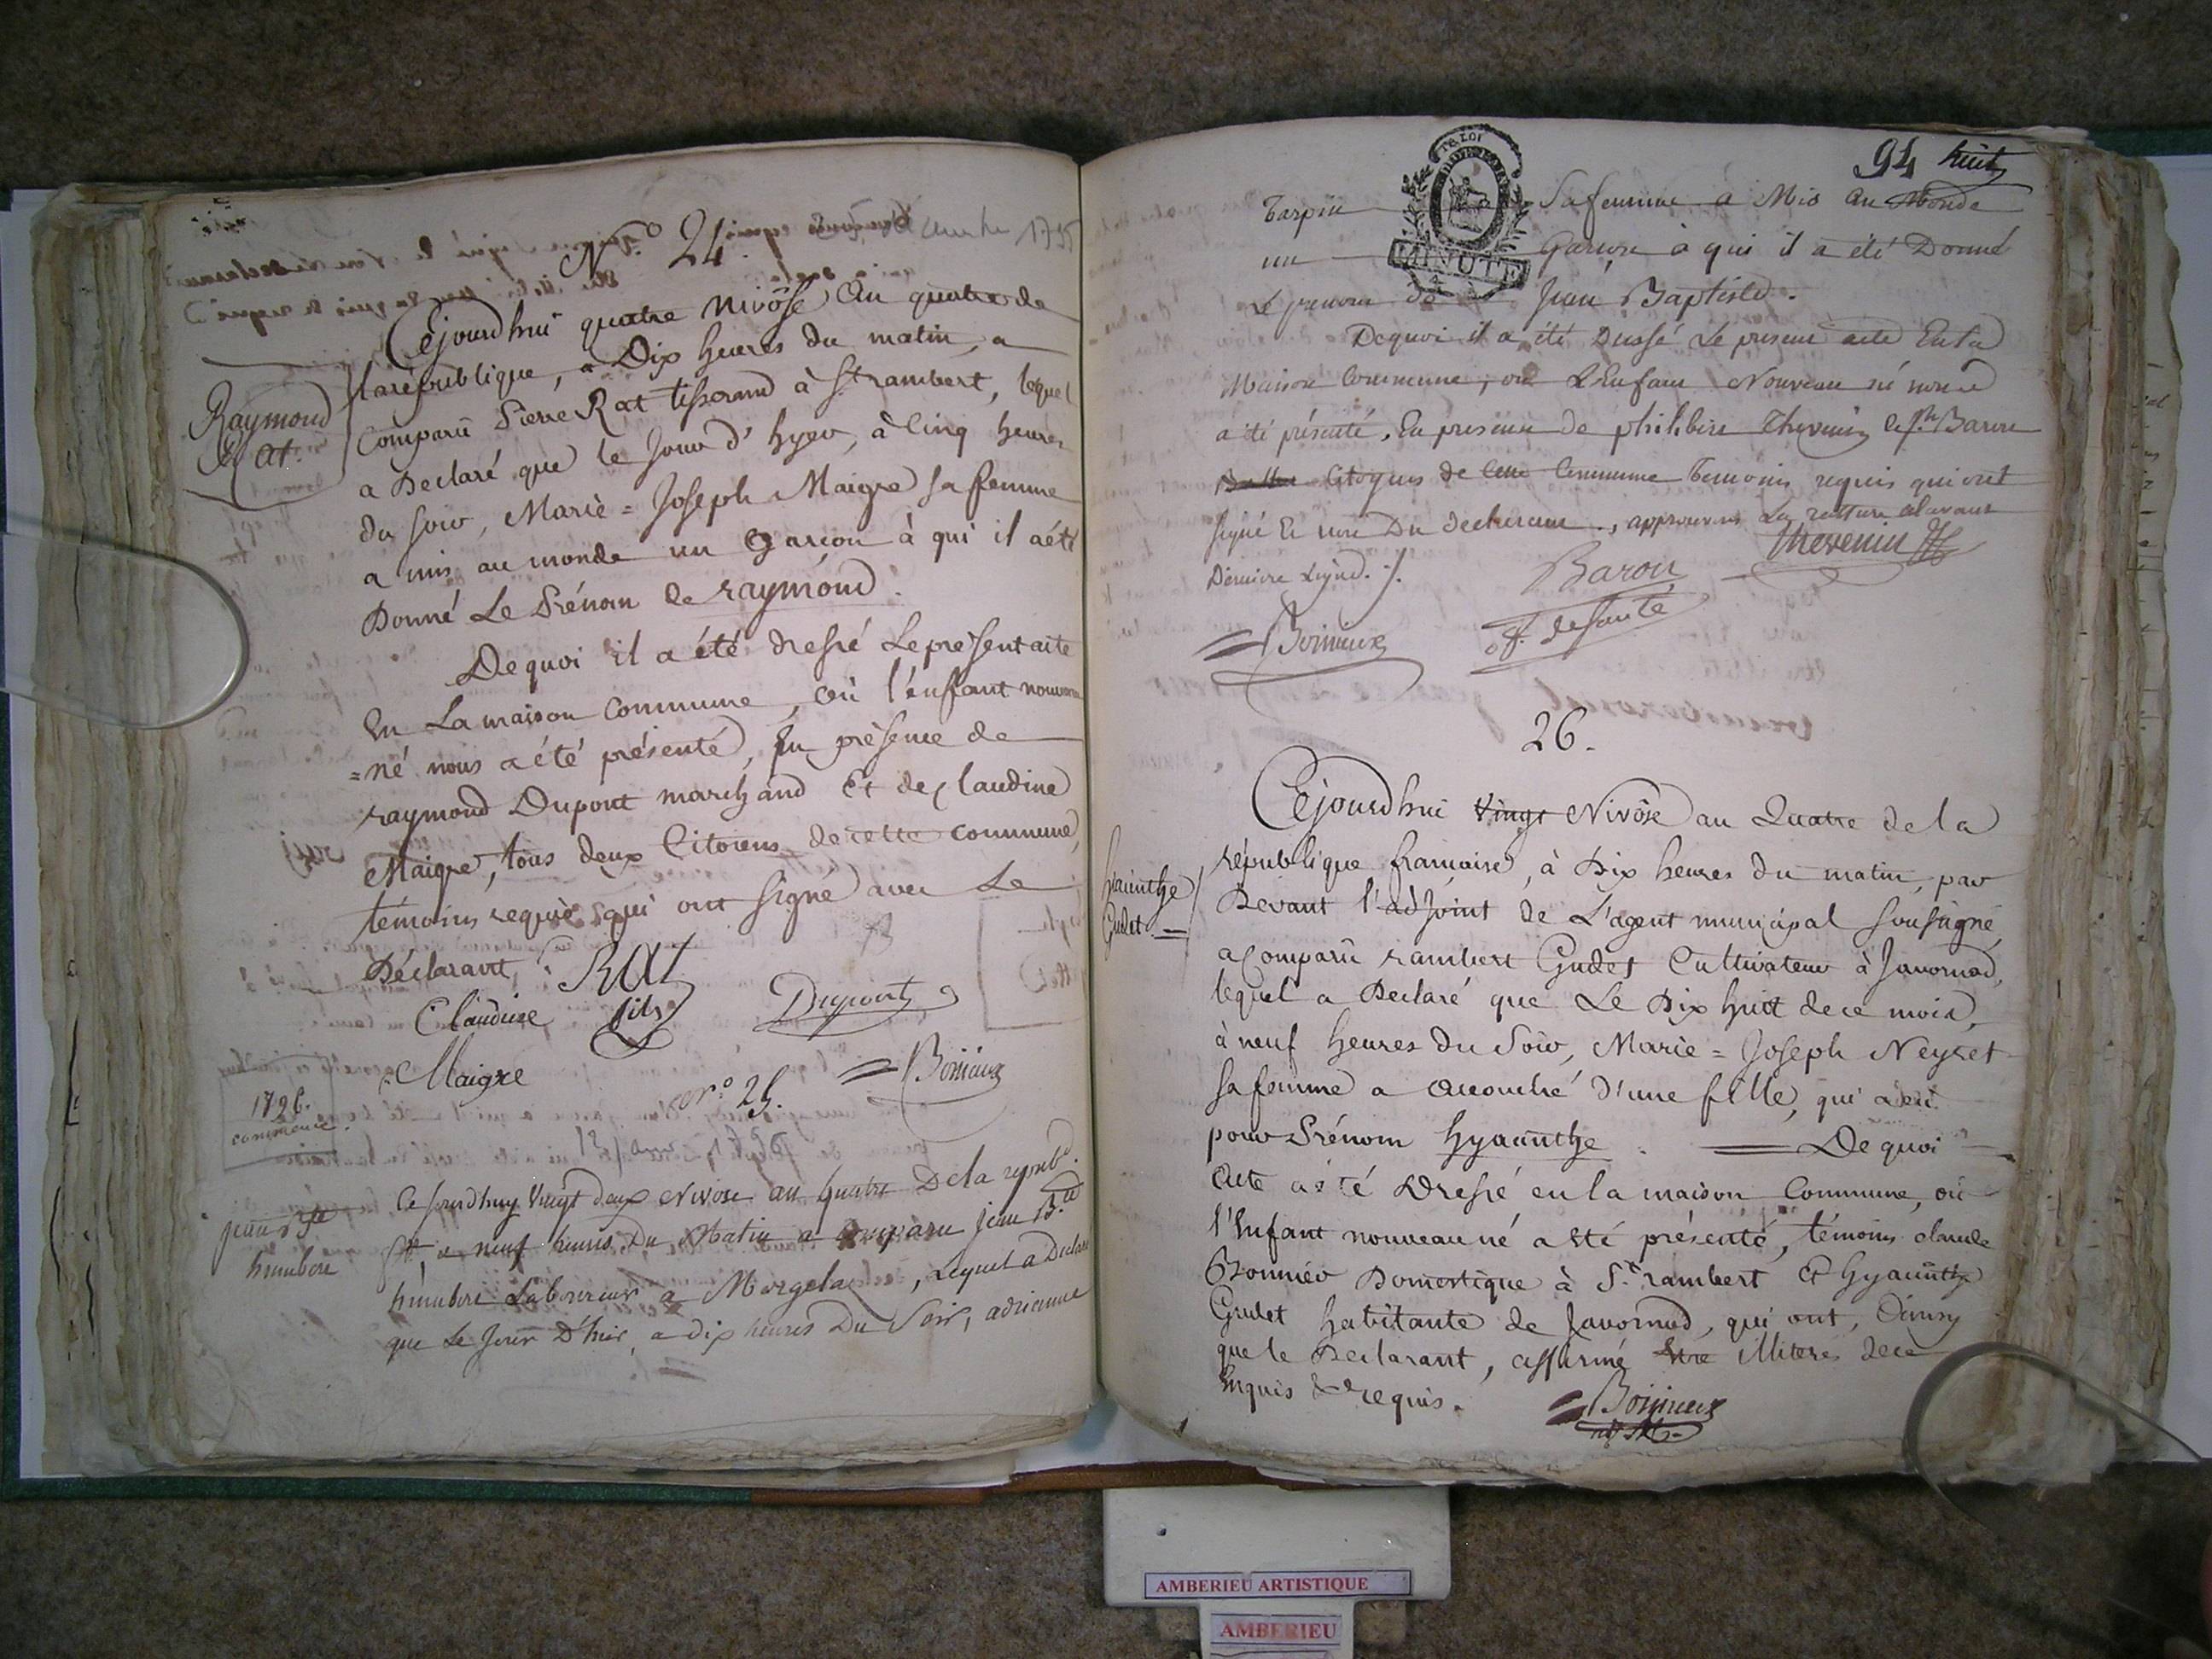 N.o 24.
1795
Cejourdhui quatre nivôse an quatre de
la république, a Dix heures du matin, a
Raymond
Rat.
Comparû Pierre Rat tisserand à St. rambert, lequel
a Declaré que le Jour d'hyer, à Cinq heures
du soir, Marie=Joseph Maigre sa femme
a mis au monde un Garçon à qui il a été
Donné Le Prénom de raymond.
De quoi il a été dressé Le present acte
En La maison Commune, où l'enfant nouveau
=né nous a été présenté, En présence de
raymond Dupont marchand Et de Claudine
Maigre, tous deux Citoiens de cette commune,
témoins requis qui ont signé avec Le
Déclarant.
RAT
fils
Claudine
Maigre
Dupont
Boisieux
1796.
commence.
N.o 25.
Ce jourdhuy vingt deux Nivose an quatre De la republ.
jean Bte
humbert
a neuf heures Du Matin a Comparu jean B.te
humbert Laboureur a Morgelas, Lequel a Declaré
que Le Jour D'hier, a dix heures Du Soir, adrienne
94 huit
LA LOI
MINUTE
Tarpin sa femme a Mis au Monde
un Garçon à qui il a été Donné
Le prenom de Jean Baptiste.
De quoi il a été Dressé Le present acte En la
Maison Commune, ou L'Enfant Nouveau né nous
a été présenté, En presence de philibert Thevenin et Jh. Baron
Citoyens de cette Commune temoins requis qui ont
signé Et non Du declarant, approuvons La rature alavant
Derniere Ligne.
Thevenin
Baron
desanté
Boisieux
26.
Cejourdhui Vingt Nivôse an Quatre de la
république francaise, à Dix heures du matin, par
hiacinthe
Gudet
Devant l'adjoint de L'agent municipal soussigné,
a Comparû rambert Gudet Cultivateur à Javornod,
lequel a Declaré que Le Dix huit de ce mois,
à neuf heures du Soir, Marie=Joseph Neyret
sa femme a accouché d'une fille, qui a eu
pour Prénom hyacinthe. De quoi
acte a été Dressé en la maison Commune, où
l'Enfant nouveau né a été présenté, témoins claude
Bonnier Domestique à St. rambert Et hyacinthe
Gudet habitante de Javornod, qui ont, Ainsy
que le Declarant, affirmé être illiteres de ce
Enquis & requis.
Boisieux
AMBERIEU ARTISTIQUE
AMBERIEU